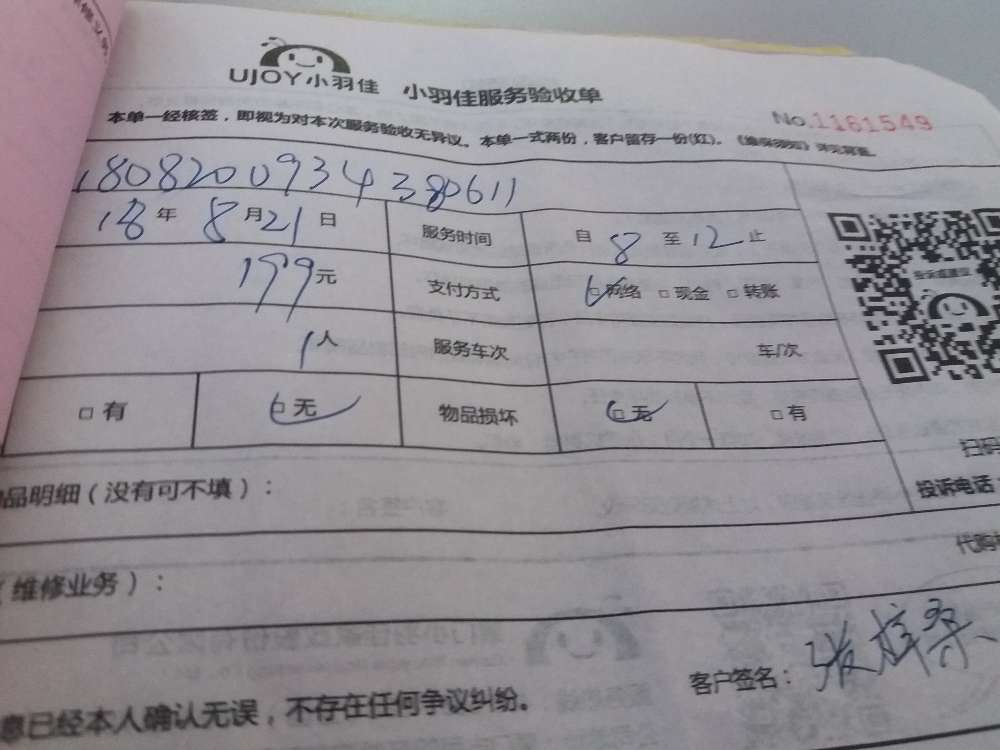 UJOY小羽佳 小羽佳服务验收单
No.1161549
本单一经核签，即视为对本次服务验收无异议。本单一式两份，客户留存一份(红)。《维保须知》详见背面。
1808200934380611
18年8月21日 服务时间 自8至12止
199元 支付方式 □网络 □现金 □转账
1人 服务车次 车/次
□有 □无 物品损坏 □无 □有
投诉或建议
扫码
品明细（没有可不填）：
投诉电话：
（维修业务）：
代购
息已经本人确认无误，不存在任何争议纠纷。
客户签名：张